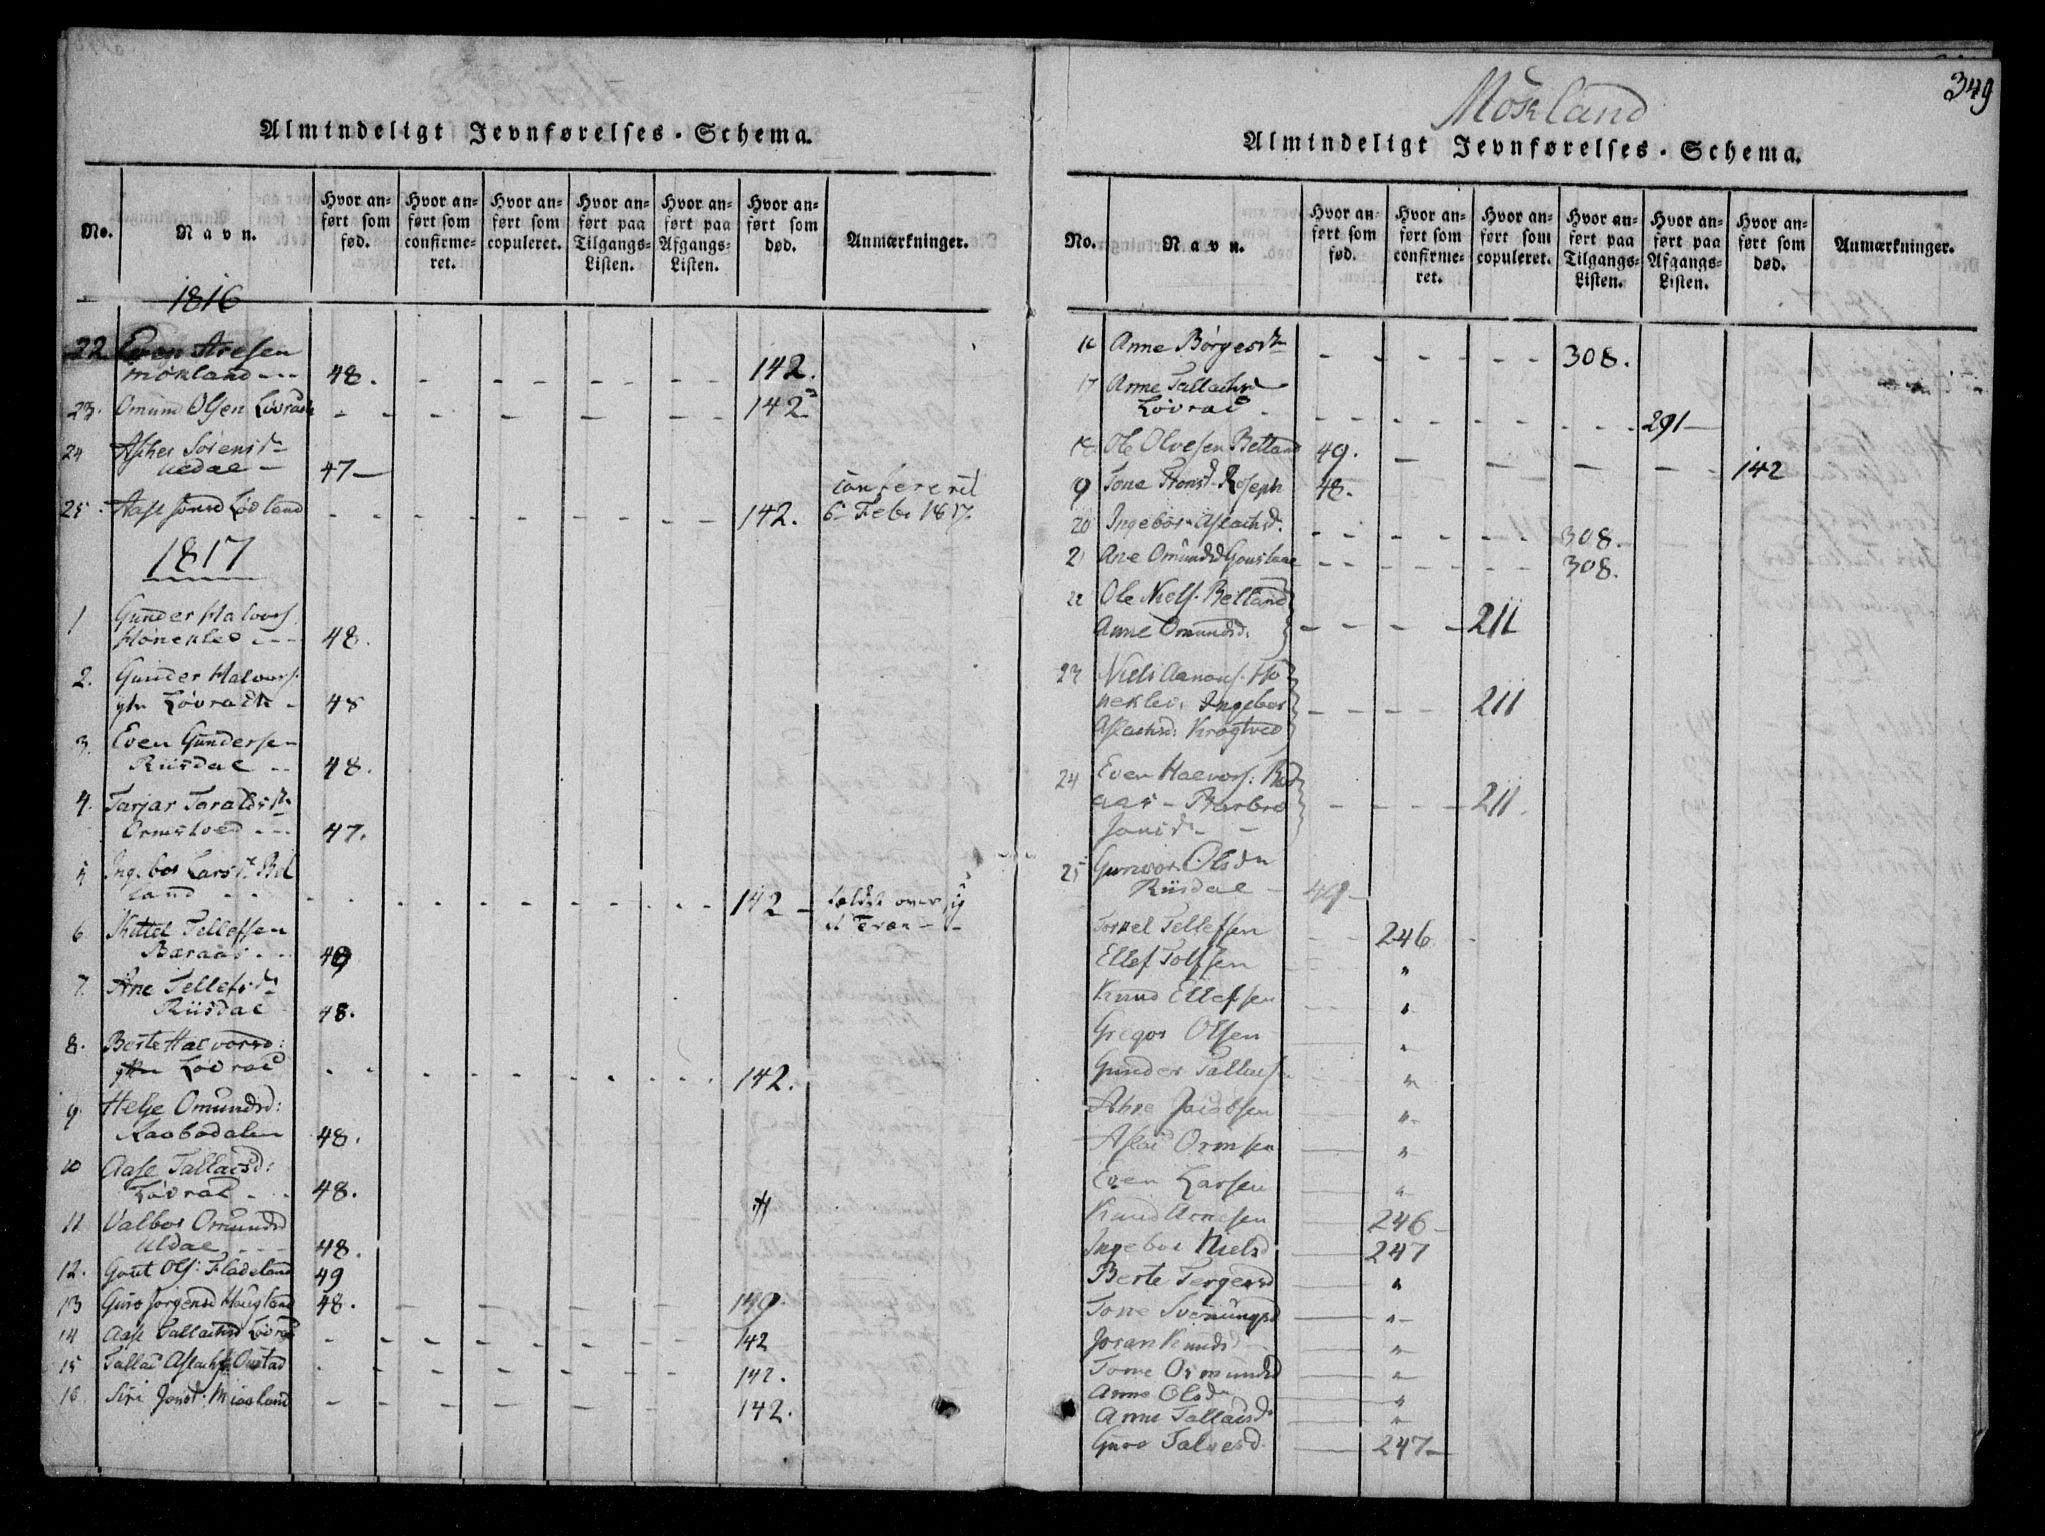 Almindeligt Jevnførelses-Schema.
No. Navn. Hvor anført som fød. Hvor anført som confirmeret. Hvor anført som copuleret. Hvor anført paa Tilgangs-Listen. Hvor anført paa Afgangs-Listen. Hvor anført som død. Anmærkninger.
1816
22 Even Aresen
Mokland --- 48. - - - - - - 142.
23. Omund Olsen Løvrach - - - - 142
24 Sørensd
Uedal - 47-
confereret
25. Aase Jonsd Løvland - - - - - - 142. 6 Feb. 1817.
1817
1 Gunder Halvors.
Hønekled --- 48.
2. Gunder Halvors.
Løvrach - 48
3. Even Gundersen
Riisdal -- 48.
4. Tarjer Taraldsd
Ormstved --- 47.
5 Ingebor Larsd. Bel
land - - - - - - - 142 -
6 Kittel Tellefsen
Bæraas -- 49
7. Ane Tellefsd
Riisdal 48.
8. Berte Halvorsd:
Løvrac - - - - - - 142.
9. Helje Omundsd:
Raabodalen 48.
10 Aase Tallacsd:
Løvrac - - 48.
11 Valbor Omundsd
Uldal --- 48.
12. Gout Ols: Fladeland 49
13 Guro Jørgensd Haugland 48. - - - -
14 Aase Tallachsd Løvrac - - - - - 142
15 Tallac Aslachs. Oustad - - - - - 142.
16. Siri Jonsd: Miosland - - - - - 142.
349
Mokland
Almindeligt Jevnførelses-Schema.
No. Navn. Hvor anført som fød. Hvor anført som confirmeret. Hvor anført som copuleret. Hvor anført paa Tilgangs-Listen. Hvor anført paa Afgangs-Listen. Hvor anført som død. Anmærkninger.
16 Anne Børgesd - - - - - 308.
17 Anne Tallachsd
Løvrac - - - - - - - 291-
18 Ole Olvesen Betland 49. - - - - - 142
19 Tone Tronsd. Roseph 48.
20 Ingebor Aslachsd. - - - - - 308.
21 Ane Omundsd - - - - - - 308.
22 Ole Niels. Belland
Anne Omundsd. - - - - 211
23 Niels Aanons. Hø
nekled. Ingebor - - - - 211
Aslachsd: Krogtved
24 Even Halvors:
aas - Barbro - - - - 211.
Jonsd -
25 Gunvor Olsd
Riisdal - 49-
Torkel Tellefsen - - 246 -
Ellef Tolfsen - - "
Knud Ellefsen - - "
Gregor Olsen - "
Gunder Tallacsen - "
Ahne Jacobsen - "
Aslac Ormsen - "
Even Larsen - "
Knud Arnesen - 246-
Ingebor Nielsd - 247
Berte Tergersd - "
Tone Svenungsd - "
Joran Knudsd - "
Tone Osmundsd - "
Anne Olsd "
Anne Tallacsd. - "
Guro Talvesd. - 247-